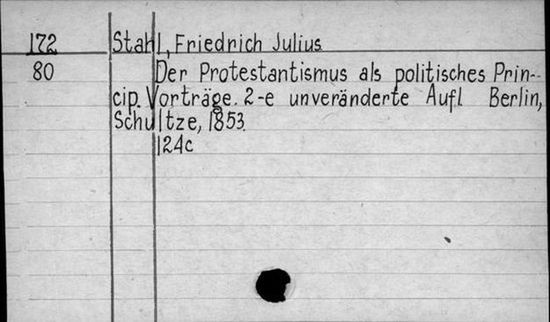 172 Stahl, Friedrich Julius
80 Der Protestantismus als politisches Prin-
cip. Vorträge. 2-e unveränderte Aufl Berlin,
Schultze, 1853.
124c